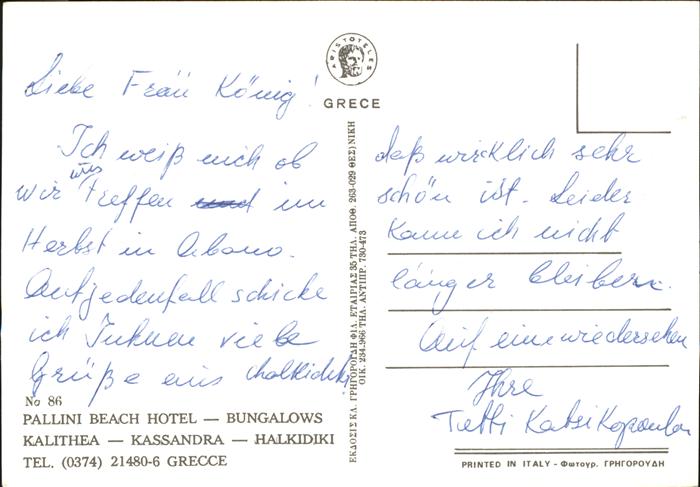 Liebe Fraü König!
Ich weiß nich ob
wir uns Treffen im
Herbst in Abano.
Aufjedenfall schicke
ich Ihnen viele
Grüße aus Chalkidiki
No 86
PALLINI BEACH HOTEL — BUNGALOWS
KALITHEA — KASSANDRA — HALKIDIKI
TEL. (0374) 21480-6 GRECCE
ARISTOTELES
GRECE
ΕΚΔΟΣΙΣ ΚΛ. ΓΡΗΓΟΡΟΥΔΗ ΦΙΛ. ΕΤΑΙΡΙΑΣ 35 ΤΗΛ. ΑΠΟΘ. 263-029 ΘΕΣ)ΝΙΚΗ
ΟΙΚ. 234.966 ΤΗΛ. ΑΝΤΙΠΡ. 730-473
daß wirklich sehr
schön ist. Leider
Kann ich nicht
länger bleiben.
Auf einewiedersehen
Ihre
PRINTED IN ITALY - Φωτογρ. ΓΡΗΓΟΡΟΥΔΗ